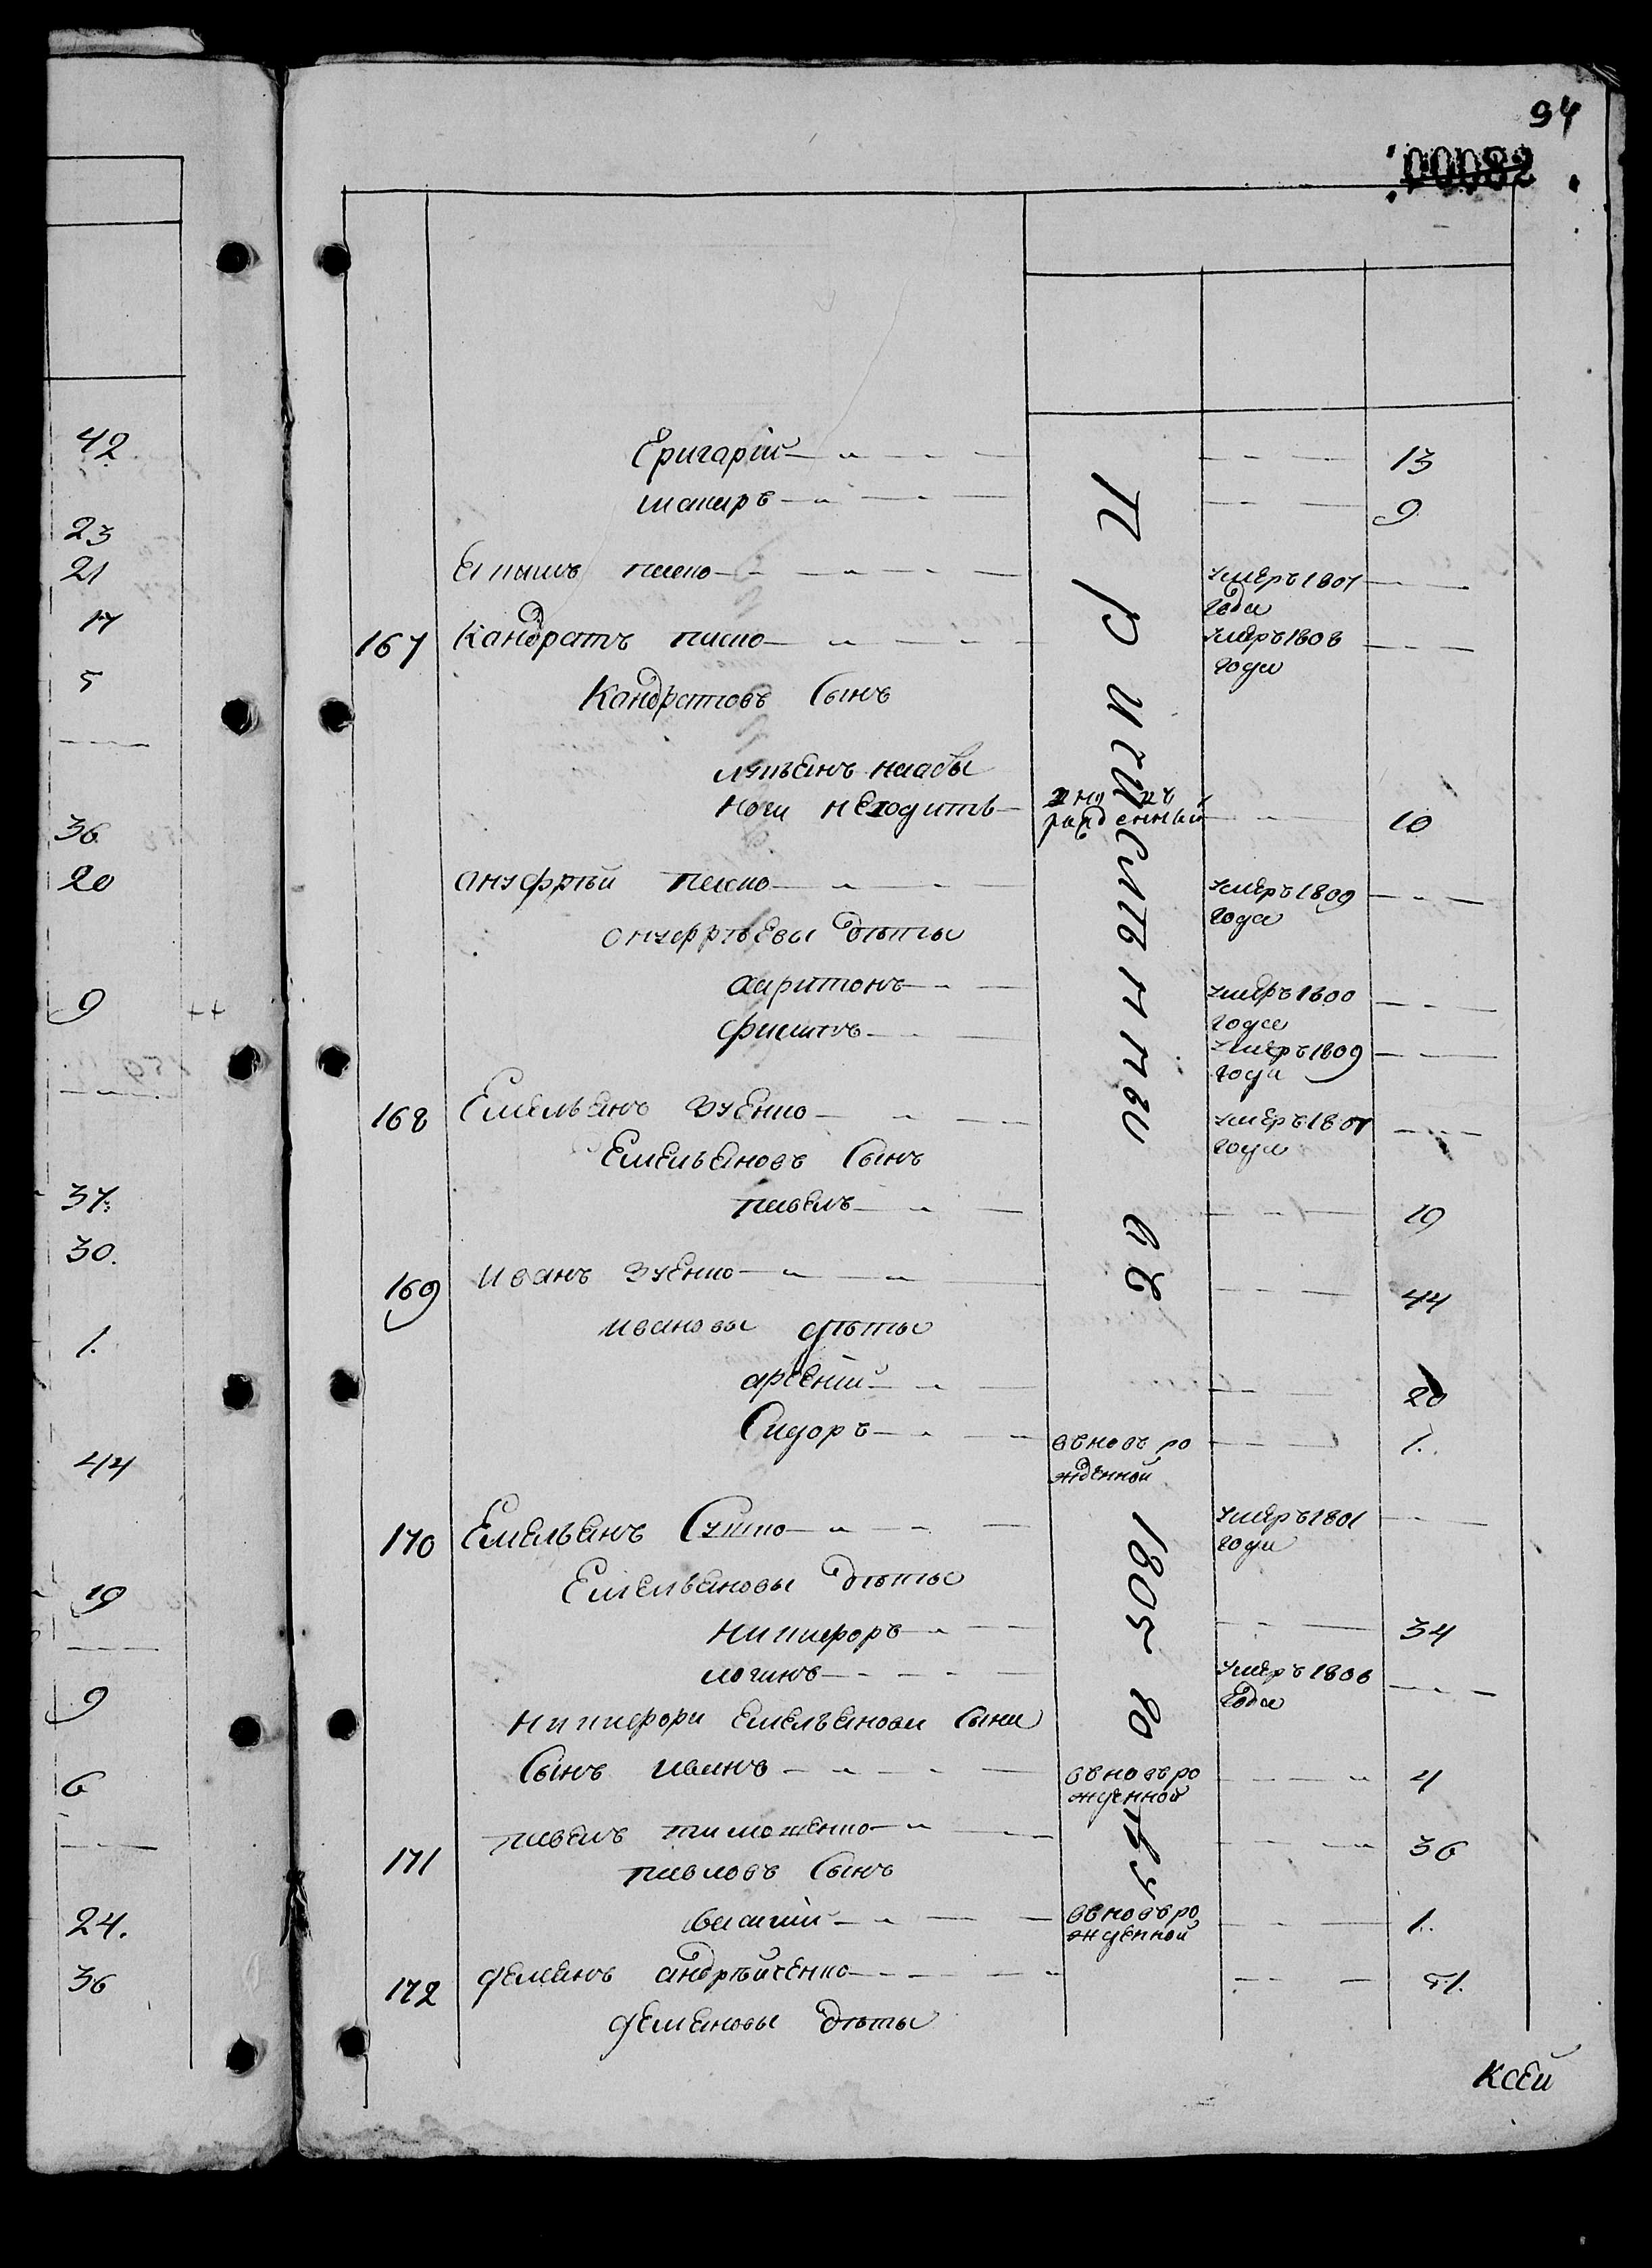 94
00082
42
23
21
17
5
36
20
9
37.
30.
1.
44
19
9
6
24.
36
Григорій 13
9
умеръ 1807
года
167 Кандратъ умеръ 1808
года
Кандратовъ Сынъ
неходитъ 10
рожденный
Онуфрѣй умеръ 1809
года
Онуфрѣевы дѣты
Харитонъ умеръ 1800
года
Филипъ умеръ 1809
года
168 Емельянъ Зуенко умеръ 1807
года
Емельяновъ Сынъ
павелъ 19
169 Иванъ Зуенко 44
ивановы дѣты
арсеній 20
Сидоръ въновь ро 1.
жденной
170 Емельянъ умеръ 1801
года
Емельяновы дѣты
Никифоръ 34
логинъ умеръ 1806
года
Никифора Емельянова Сына
Сынъ иванъ вѣновъ ро 4
жденной
171 павелъ тимошенко 36
павловъ Сынъ
василій вѣновъ ро 1.
жденной
172 демянъ андрѣйченко 51.
демяновы дѣты
1805 го
Ксей